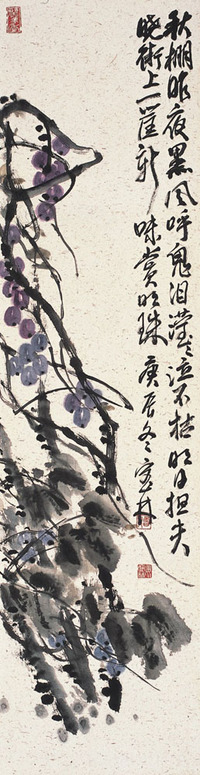 秋棚昨夜黑风呼鬼泪莹莹泣不枯明日担夫
晓街上一筐新味赏明珠 庚辰冬